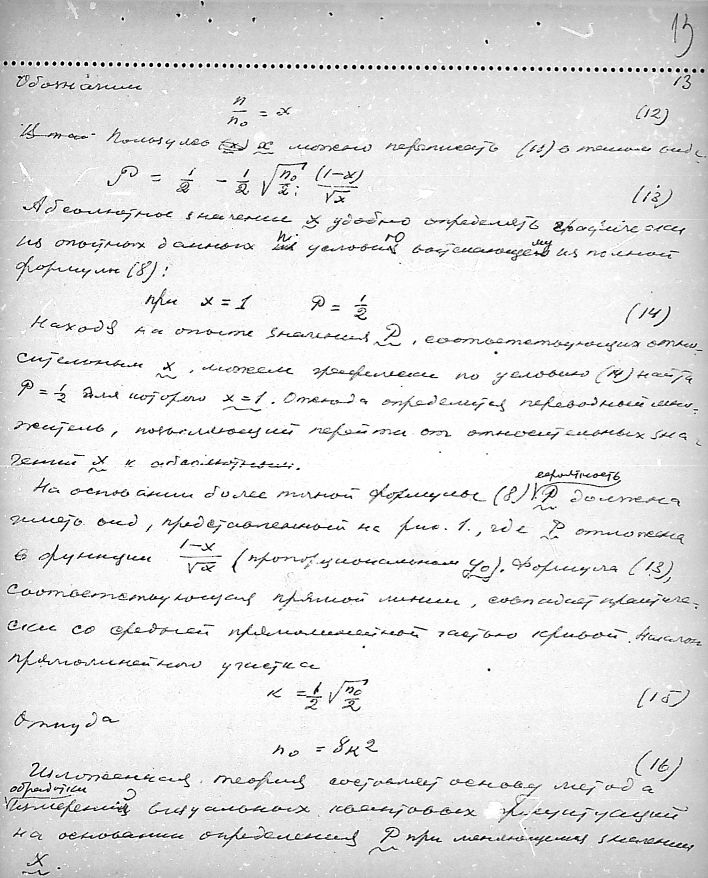 13
13
Обозначим
n/n₀ = x (12)
Пользуясь x можно переписать (11) в таком виде
P = 1/2 - 1/2 √(n₀/2) (1-x)/√x (13)
Абсолютное значения x удобно определять графически
из опытных данных и условия вытекающему из полной
формулы (8):
при x = 1 P = 1/2 (14)
Находя на опыте значения P, соответствующих относи-
сительным x, можем графически по условию (14) найти
P = 1/2 для которого x = 1. Отсюда определится переводный мно-
житель, позволяющий перейти от относительных зна-
чений x к абсолютным.
На основании более точной формулы (8) вероятность P должна
иметь вид, представленный на рис. 1., где P отложена
в функции (1-x)/√x (пропорциональном y₀). Формула (13),
соответствующая прямой линии, совпадает практиче-
ски со средней прямолинейной частью кривой. Наклон
прямолинейного участка
K = 1/2 √(n₀/2) (15)
Откуда
n₀ = 8K² (16)
Изложенная теория составляет основу метода
обработки
измерений визуальных квантовых флуктуаций
на основании определения P при меняющемся значении
x.